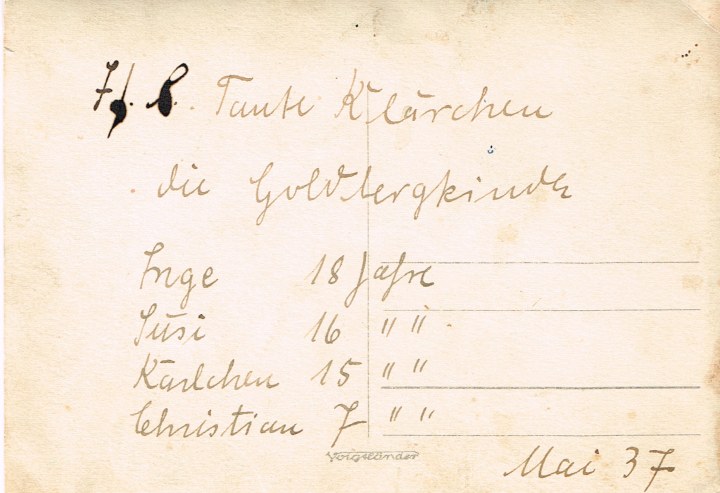 Tante Klärchen
die Goldbergkinder
Inge 18 Jahre
Susi 16 " "
Karlchen 15 " "
Christian 7 " "
Voigtländer
Mai 37